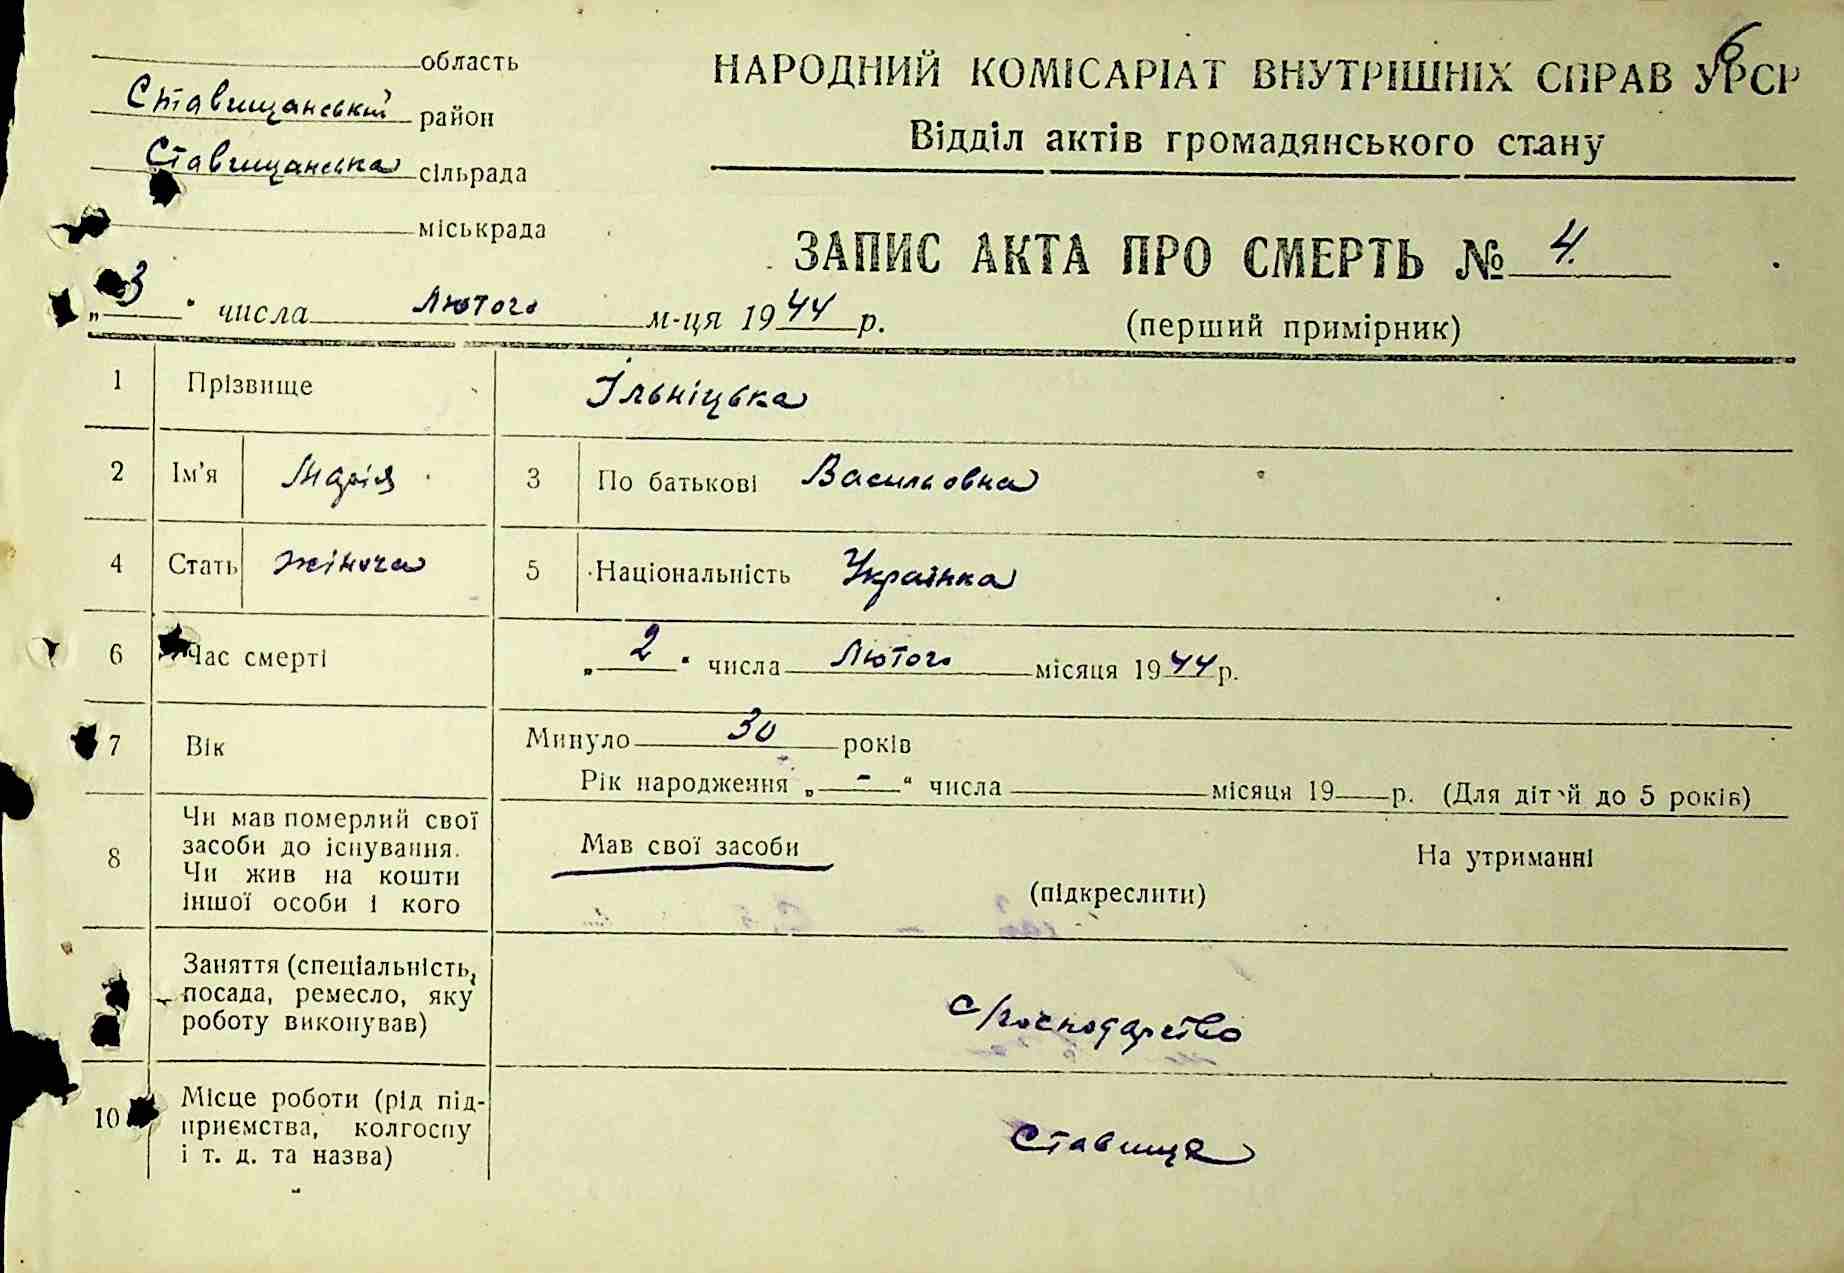 6
область
Ставищанський район
Ставищанська сільрада
міськрада
НАРОДНИЙ КОМІСАРІАТ ВНУТРІШНІХ СПРАВ УРСР
Відділ актів громадянського стану
ЗАПИС АКТА ПРО СМЕРТЬ № 4.
„3“ числа Лютого м-ця 1944 р.
(перший примірник)
1 Прізвище Ільніцька
2 Ім'я Марія 3 По батькові Васильовна
4 Стать жіноча 5 Національність Українка
6 Час смерті „2“ числа Лютого місяця 1944 р.
7 Вік Минуло 30 років
Рік народження „-“ числа місяця 19 р. (Для дітей до 5 років)
8 Чи мав померлий свої
засоби до існування.
Чи жив на кошти
іншої особи і кого
Мав свої засоби На утриманні
(підкреслити)
Заняття (спеціальність,
посада, ремесло, яку
роботу виконував)
с/господарство
10 Місце роботи (рід під-
приємства, колгоспу
і т. д. та назва)
Ставище